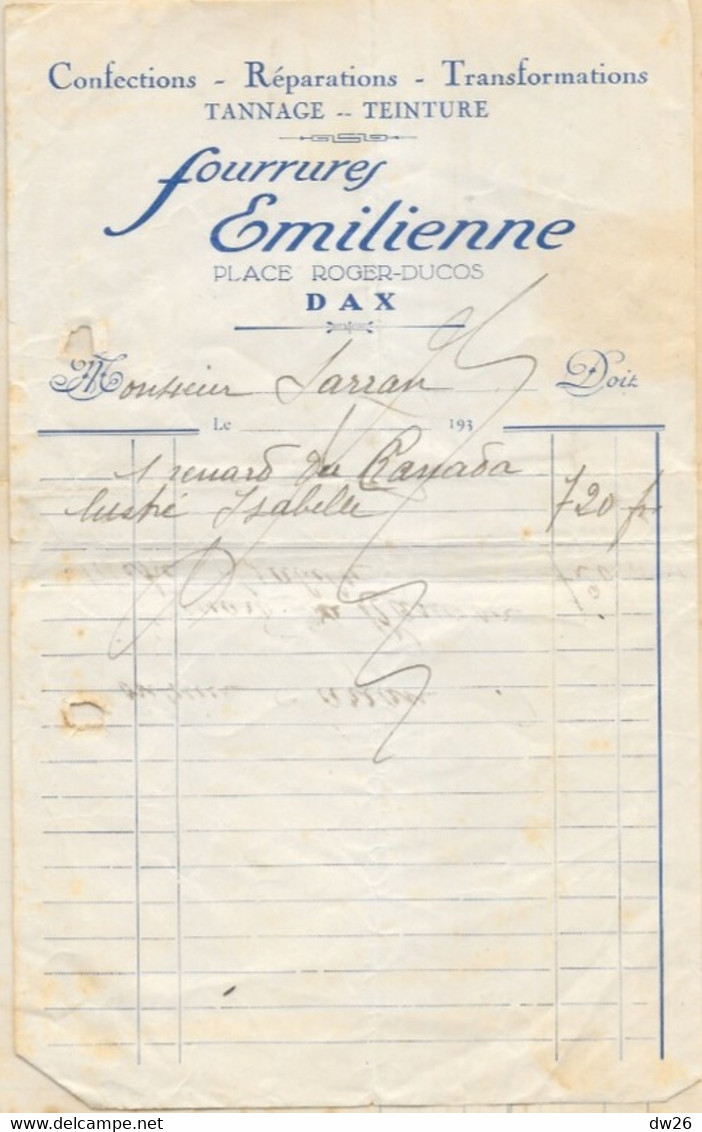 Confections - Réparations - Transformations
TANNAGE -- TEINTURE
fourrures
Emilienne
PLACE ROGER-DUCOS
DAX
Monsieur Sarran Doit
Le 193
1 renard du Canada
lustré Isabelle 720 fr
dw26